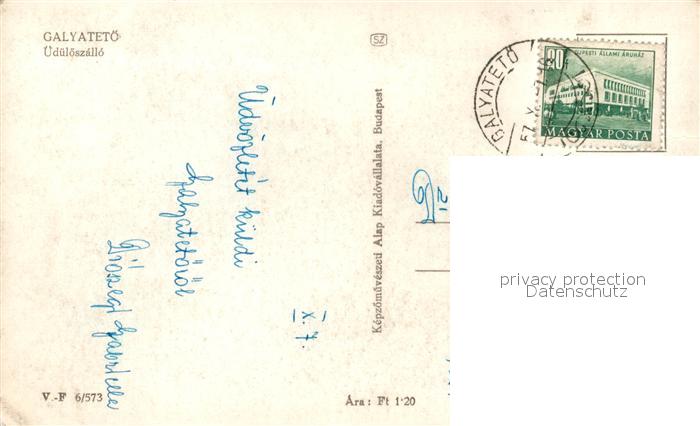 GALYATETŐ
Üdülőszálló
SZ
Üdvözletét küldi
Galyatetőről
Diószegi Gabriella
X. 7.
Képzőművészeti Alap Kiadóvállalata, Budapest
V.-F 6/573
Ára: Ft 1·20
GALYATETŐ
57 X
ÚJPESTI ÁLLAMI ÁRUHÁZ
MAGYAR POSTA
privacy protection
Datenschutz